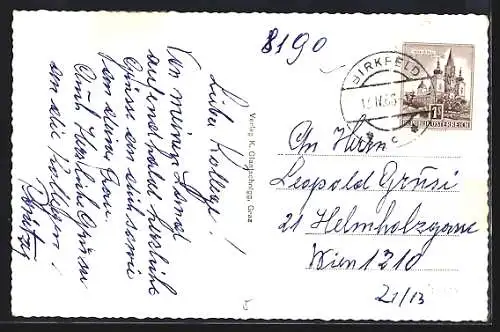 8190
BIRKFELD
1
REPUBLIK ÖSTERREICH
Lieber Kollege!
Von meinem Land
aufenthalt herzliche
Grüsse an dich sowie
an deine Frau
Auch herzliche Grüsse
an die Kollegen!
Verlag K. Graz
An Herrn
Leopold Grusi
21 Helmholzgasse
Wien 1210
21/13